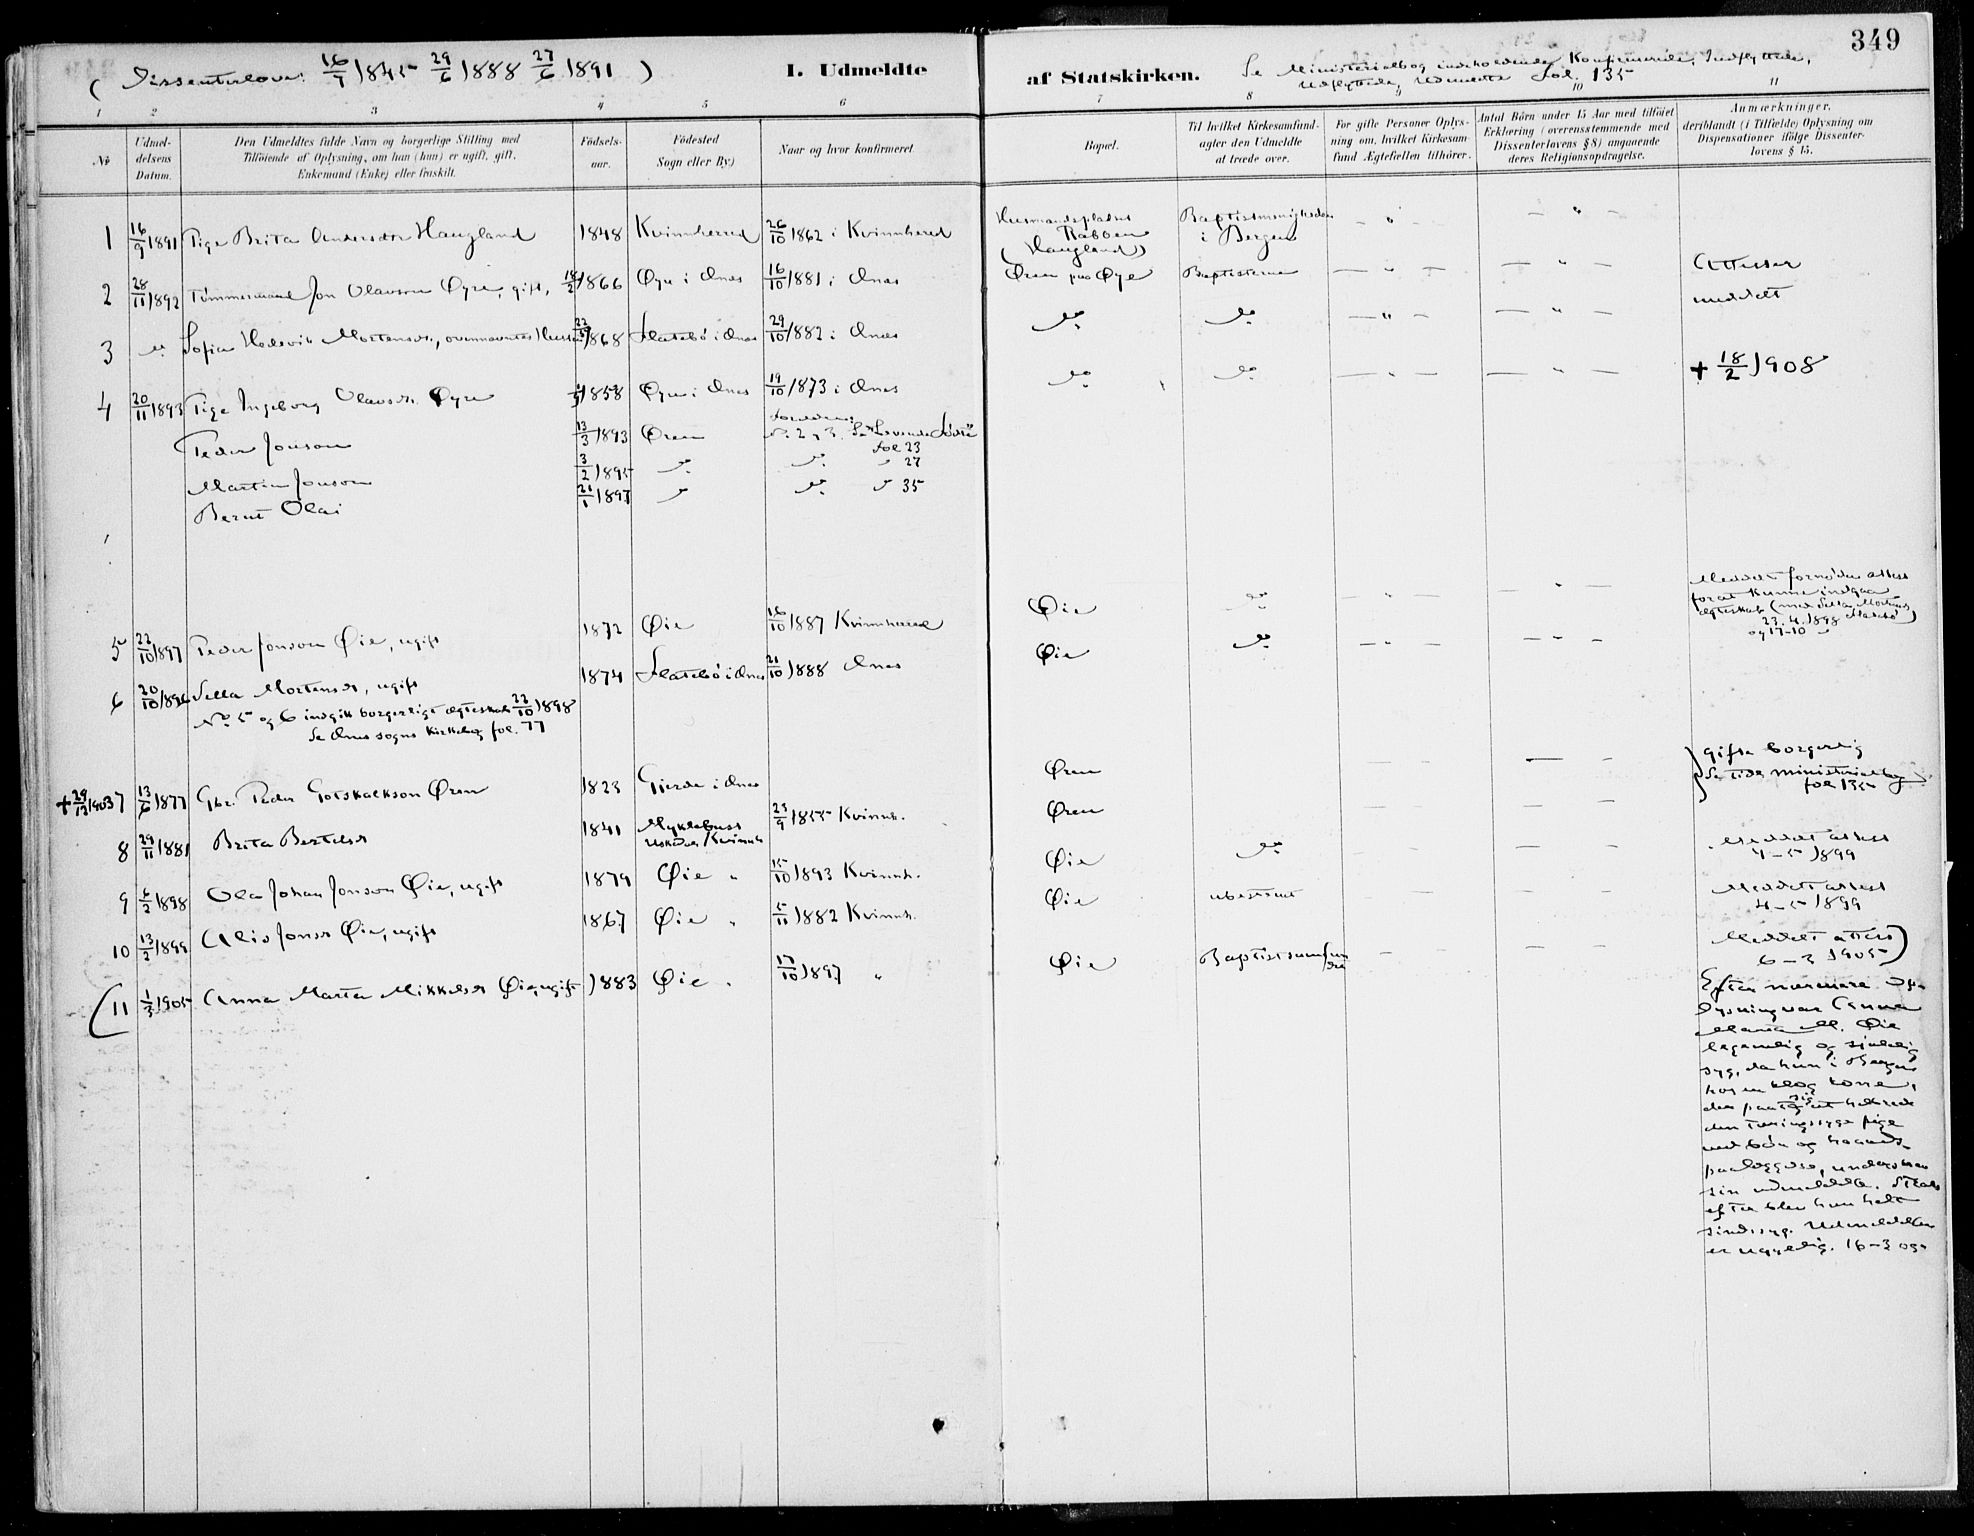 349
(Dissenterlove: 16/7 1845 29/6 1888 27/6 1891)
I. Udmeldte af Statskirken.
Se Ministerialbog indeholdende Konfirmerede, Indflyttede,
Udflyttede, Udmeldte fol. 135
1 2 3 4 5 6 7 8 9 10 11
No
Udmeldelsens Datum.
Den Udmeldtes fulde Navn og borgerlige Stilling med
Tilföiende af Oplysning, om han (hun) er ugift, gift,
Enkemand (Enke) eller fraskilt.
Födselsaar.
Födested
Sogn eller By.)
Naar og hvor konfirmeret
Bopæl.
Til hvilket Kirkesamfund-
agter den Udmeldte
at træde over.
For gifte Personer Oplys-
ning om, hvilket Kirkesam
fund Ægtefællen tilhörer.
Antal Börn under 15 Aar med tilföiet
Erklæring (overensstemmende med
Dissenterlovens § 8) angaaende
deres Religionsopdragelse.
Anmærkninger,
deriblandt (i Tilfælde) Oplysning om
Dispensationer ifölge Dissenter-
lovens § 15.
1 16/9 1891 Pige Brita Andersdtr Haugland 1848 Kvinnherred 26/10 1862 i Kvinnherred Husmandspladset Rabben (Haugland) Baptistmenigheden i Bergen — " — — " —
2 28/11 1892 Tømmermand Jon Olavson Øyre, gift, 18/2 1866 Øyre i Ænes 16/10 1881 i Ænes Øren paa Øye Baptisterne — " — — " — Attester meddelt
3 " Sofia Hedevik Mortensdr., ovennævntes Hustru 22/ 1868 Flatebö i Ænes 29/10 1882 i Ænes do do — " — — " —
4 20/11 1893 Pige Ingeborg Olavsdr. Øyre 1858 Øyre i Ænes 19/10 1873 i Ænes do do — " — — " — + 18/2 1908
Peder Jonson 13/3 1893 Øren Forældrene No. 2 & 3. Se "Levende fødte" fol 23
Martin Jonson 3/2 1895 do do " 27
Bernt Olai 21/1 1897 do do " 35
5 22/10 1897 Peder Jonson Øie, ugift 1872 Øie 16/10 1887 Kvinnherred Øie do — " — — " — Meddelt fornøden attest
for at kunne indgaa
ægteskab (med Sella Mortensdr
23.4.1898 Flatebø)
og 17-10
6 20/10 1896 Sella Mortensdr, ugift 1874 Flatebö i Ænes 21/10 1888 Ænes Øie do — " — — " —
No. 5 og 6 indgik borgerligt ægteskab 22/10 1898
Se Ænes sogns Kirkebog fol. 77
+ 29/12 1903 7 13/6 1877 Gbr. Peder Gotskalkson Øren 1823 Gjerde i Ænes Øren } Gifte borgerlig
Se tidl. ministerialbog
fol 135
8 29/11 1881 Brita Bertelsdr 1841 Myklebust Uskedal/Kvinnh 23/9 1855 Kvinnh. Øren
9 5/2 1898 Ola Johan Jonson Øie, ugift 1879 Øie " 15/10 1893 Kvinnh. Øie do Meddelt attest
4-5 1899
10 13/2 1899 Alis Jonsdr Øie, ugift 1867 Øie " 5/11 1882 Kvinnh. Øie ubestemt Meddelt attest
4-5 1899
(11 1/3 1905 Anna Marta Mikkelsdr Øie, ugift 1883 Øie " 17/10 1897 " Øie Baptistsamfundet Meddelt attest)
6-3 1905
Efter nærmere Op-
lysning var Anna
Marta M. Øie
legemlig og sjælelig
syg, da hun i Bergen
hos en klog kone,
der paatog sig at helbrede
den tæringssyge pige
ved bön og haands-
paalæggelse, underskrev
sin udmeldelse. Straks
efter blev hun helt
sindssyg. Udmeldelsen
er ugyldig. 16-3 05.